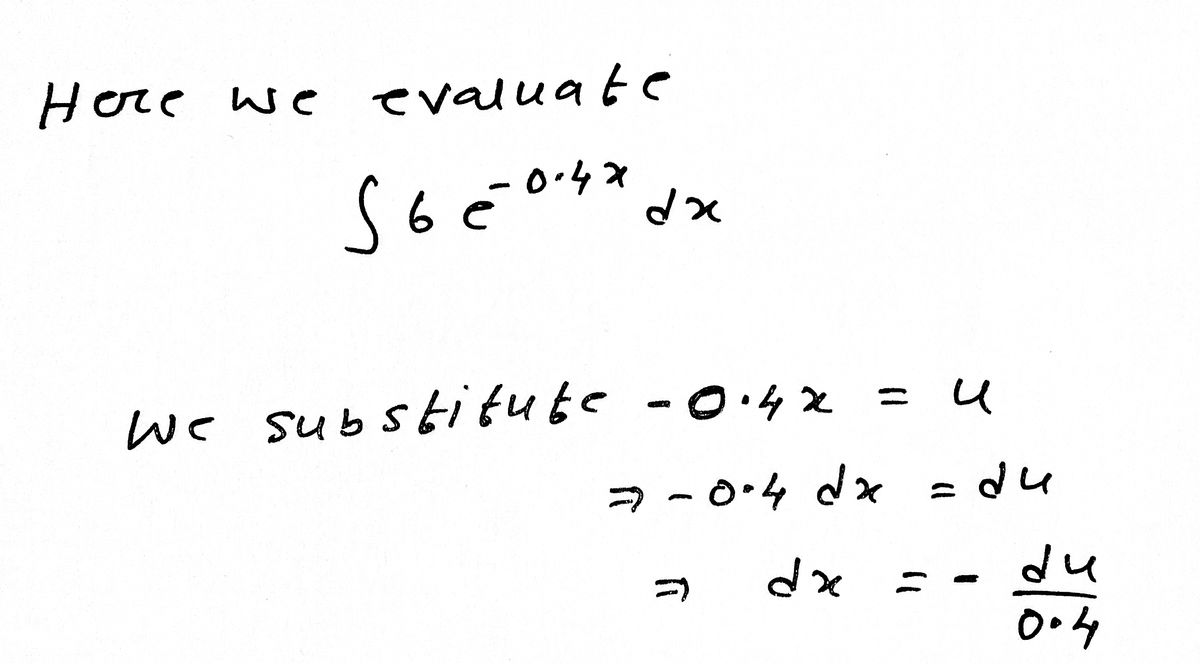 Here we evaluate
∫ 6 e^{-0.4x} dx
We substitute -0.4x = u
⇒ -0.4 dx = du
⇒ dx = - \frac{du}{0.4}